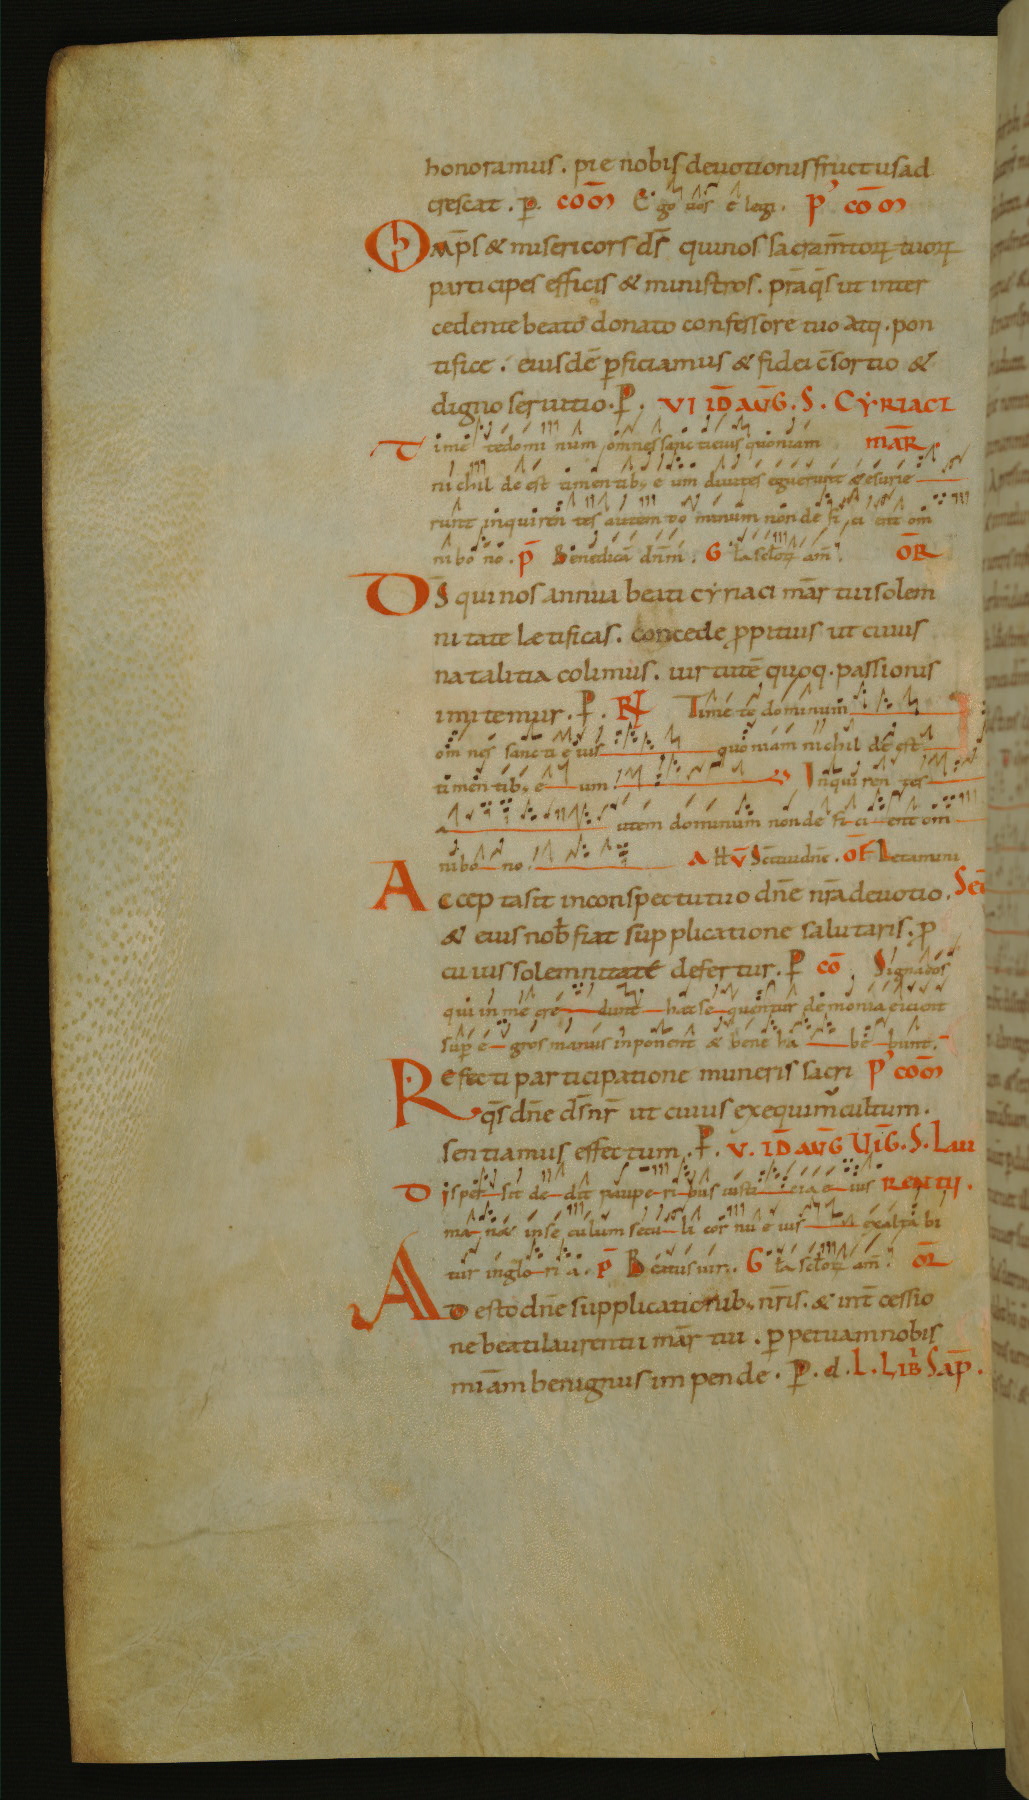 honoramus. pie nobis deuotionis fructus ad
crescat. p. cōm Ego uos elegi. p' cōm
Omp̄s & misericors ds̄ qui nos sacram̄torꝝ tuorꝝ
participes efficis & ministros. prāq̄s ut inter
cedente beato donato confessore tuo atq. pon
tifice. eiusdē ꝑficiamus & fidei c̄sortio &
digno seruitio. P. VI ID̄ AŪG. S. CYRIACI
Timete dominum omnes sancti eius quoniam MĀR.
nichil deest timentib; eum diuites eguerunt & esurie
runt inquirentes autem dominum non deficient om
ni bono. p̄ Benedicā dn̄m. G la sclorꝝ am̄. ŌR
Ds̄ qui nos annua beati cyriaci mār tui solem
nitate laetificas. concede ꝓpitius ut cuius
natalitia colimus. uirtutē quoq. passionis
imitemur. P. R Timete dominum
omnes sancti eius quoniam nichil deest
timentib; eum. Inquirentes
autem dominum non deficient om
ni bono. A ll V Sc̄i tui dn̄e. OF Letamini
Accepta sit in conspectu tuo dn̄e nr̄a deuotio. Sec̄
& eius nob̄ fiat supplicatione salutaris. ꝑ
cuius solemnitate defertur. P cō. Signa eos
qui in me credunt haec sequentur demonia eicient
sup̄ egros manus inponent & bene habebunt.
Refecti participatione muneris sacri P' cōm
q̄s dn̄e ds̄ nr̄ ut cuius exequim̄ cultum.
sentiamus effectum. P. V. ID̄ AŪG UIḠ. S. Lau
Dispersit dedit pauperibus iusticia eius RENTII.
manet in seculum seculi cornu eius exaltabi
tur in gloria. p̄ Beatus uir. G la sclorꝝ am̄. ŌR
Adesto dn̄e supplicationib; nr̄is. & int̄cessio
ne beati laurentii mār tui. ꝑpetuam nobis
mīam benignus impende. P. d. L. LIB̄ SAP̄.